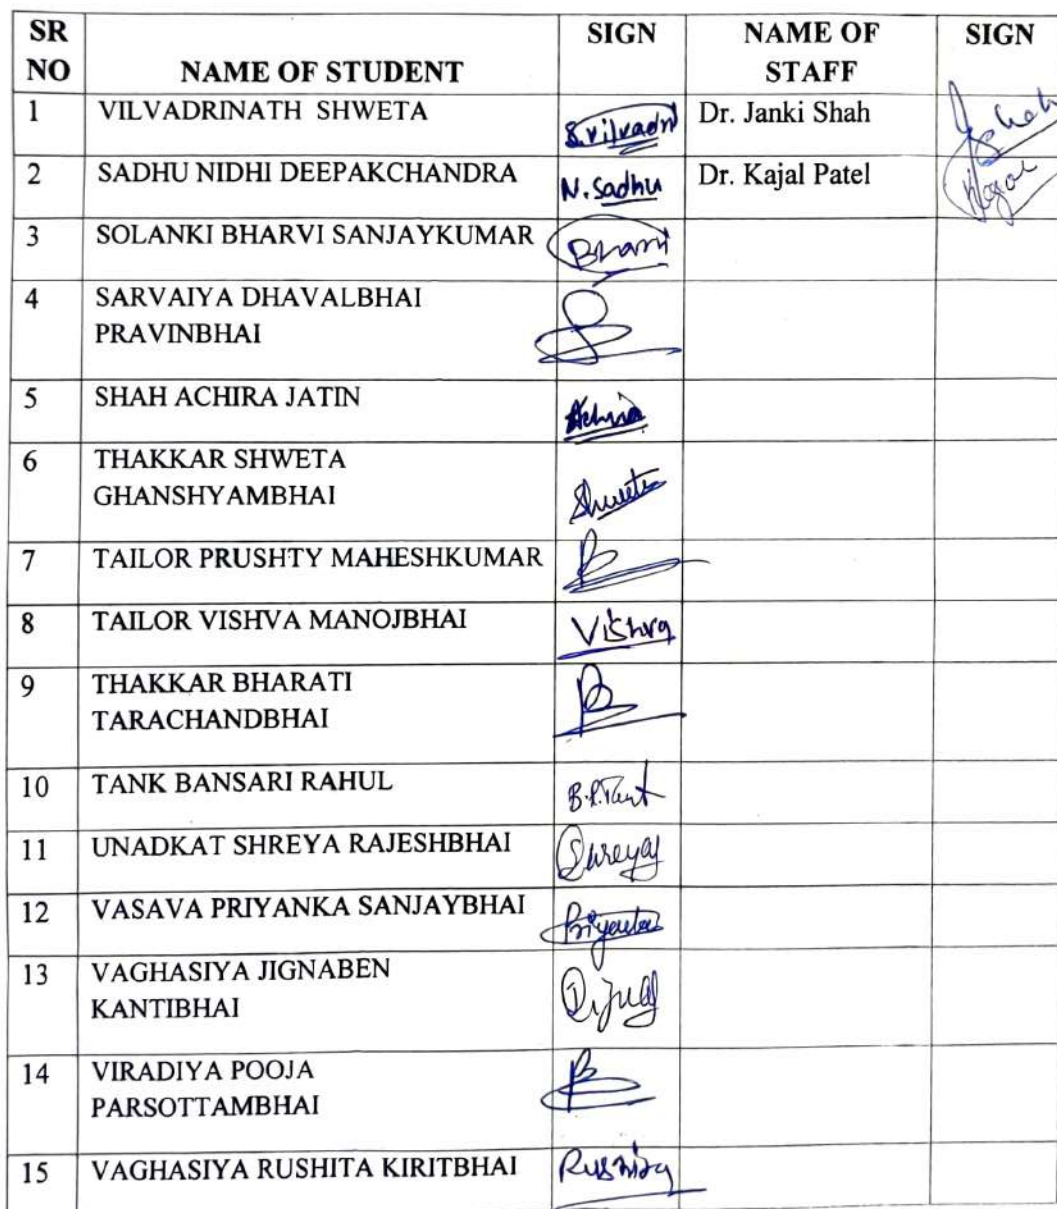 SR NO NAME OF STUDENT SIGN NAME OF STAFF SIGN
1 VILVADRINATH SHWETA S.Vilvadri Dr. Janki Shah
2 SADHU NIDHI DEEPAKCHANDRA N.Sadhu Dr. Kajal Patel
3 SOLANKI BHARVI SANJAYKUMAR
4 SARVAIYA DHAVALBHAI
PRAVINBHAI
5 SHAH ACHIRA JATIN Achira
6 THAKKAR SHWETA
GHANSHYAMBHAI Shweta
7 TAILOR PRUSHTY MAHESHKUMAR
8 TAILOR VISHVA MANOJBHAI Vishva
9 THAKKAR BHARATI
TARACHANDBHAI
10 TANK BANSARI RAHUL
11 UNADKAT SHREYA RAJESHBHAI
12 VASAVA PRIYANKA SANJAYBHAI Priyanka
13 VAGHASIYA JIGNABEN
KANTIBHAI
14 VIRADIYA POOJA
PARSOTTAMBHAI
15 VAGHASIYA RUSHITA KIRITBHAI Rushita